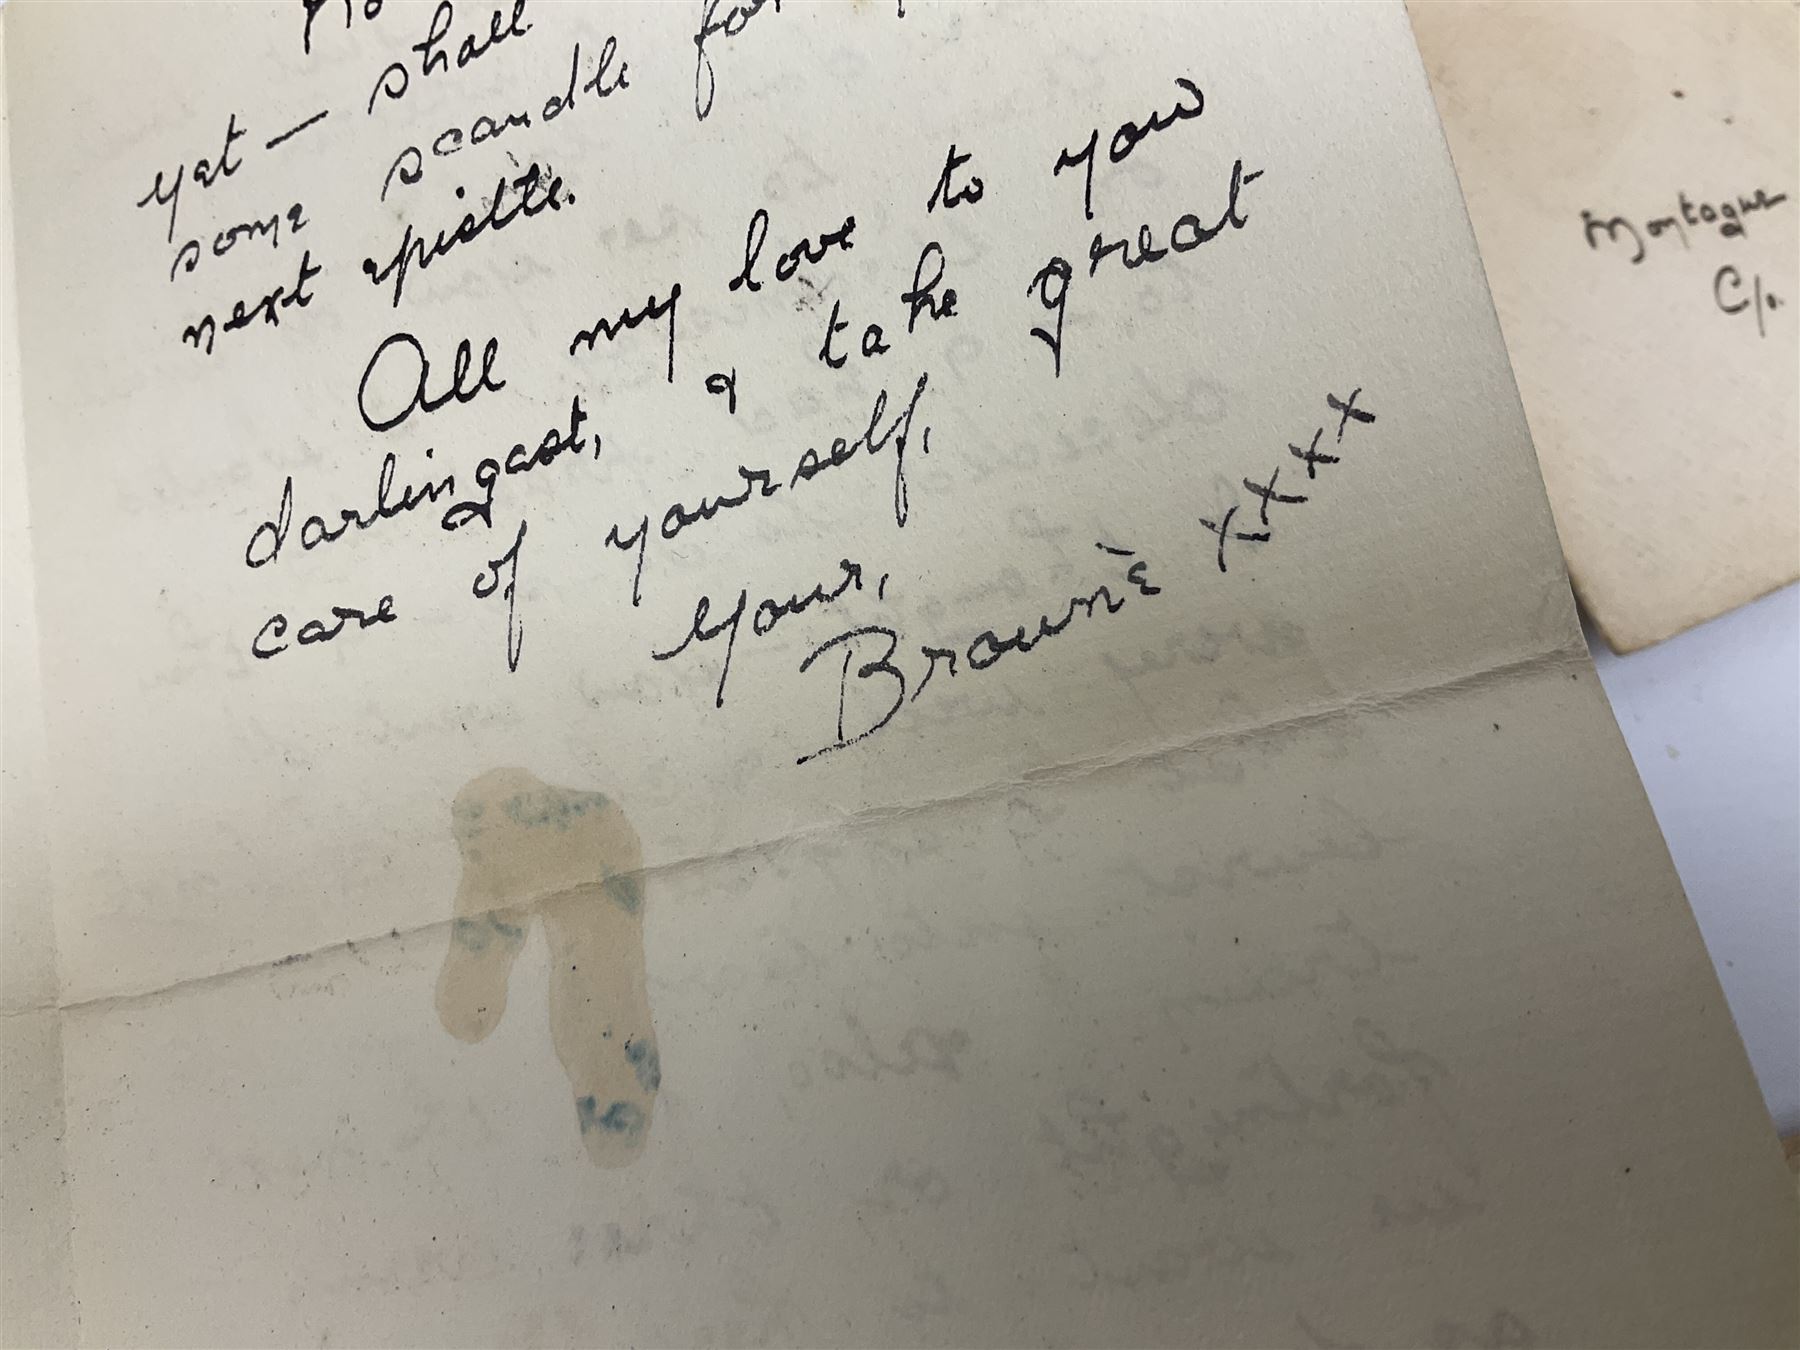 yet — shall
some scandle for
next epistle.
All my love to you
darlingest, & take great
care of yourself,
Your,
Brownè xxxx
Montague
C/o.